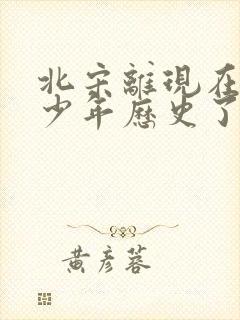 北宋離現在
少年歷史了
黃彥蓉